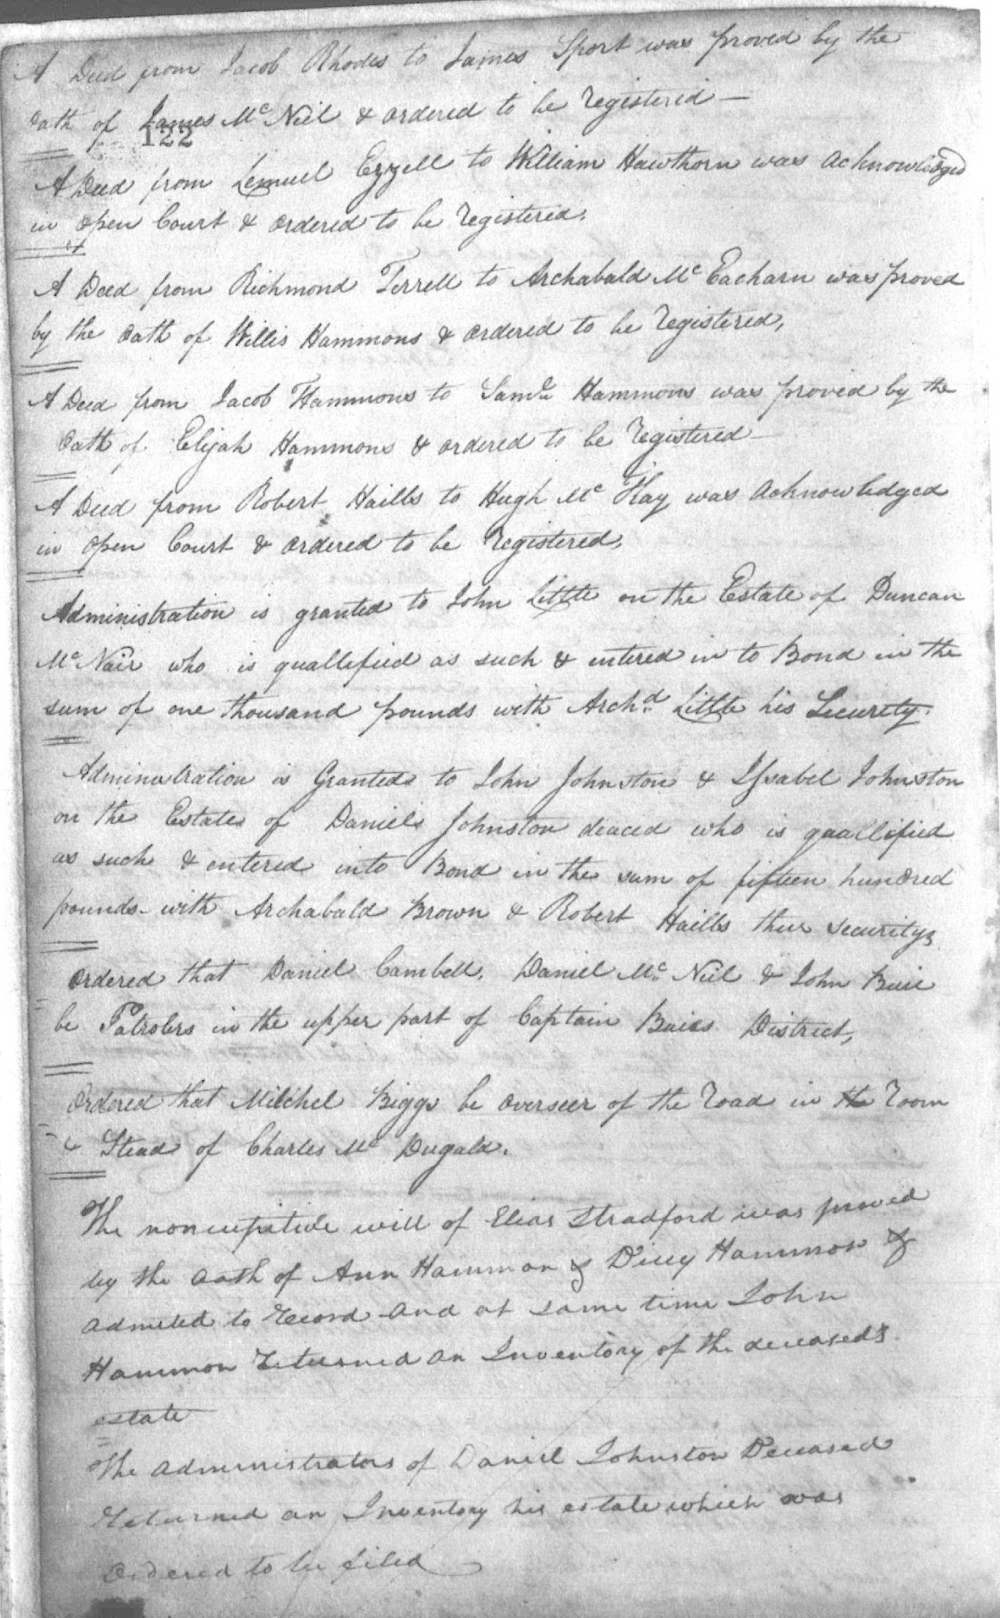 A Deed from Jacob Rhodes to James Sport was proved by the
Oath of James Mc Niel & ordered to be registered —
122
A Deed from Lemuel Ezzell to William Hawthorn was acknowledged
in open Court & ordered to be registered.
A Deed from Richmond Terrell to Archabald Mc Eacharn was proved
by the oath of Willis Hammons & ordered to be registered,
A Deed from Jacob Hammons to Saml Hammons was proved by the
Oath of Elijah Hammons & ordered to be registered —
A Deed from Robert Haills to Hugh Mc Kay was acknowledged
in open Court & ordered to be registered,
Administration is granted to John Little on the Estate of Duncan
Mc Nair who is quallified as such & entered in to Bond in the
sum of one thousand pounds with Archd Little his Security.
Adminustration is Granted to John Johnston & Issabel Johnston
on the Estate of Daniel Johnston deaced who is quallified
as such & entered into Bond in the sum of fifteen hundred
pounds - with Archabald Brown & Robert Haills their securitys
Ordered that Daniel Cambell, Daniel Mc Niel & John Buie
be Patrolers in the upper part of Captain Buies District,
Ordered that Mitchel Biggs be overseer of the road in the room
& Stead of Charles Mc Dugald.
The noncupative will of Elias Stradford was proved
by the oath of Ann Hammon & Dicey Hammon &
admited to record and at same time John
Hammon returned an Inventory of the deceased's
estate
The administrators of Daniel Johnston Deceased
returned an Inventory his estate which was
Ordered to be filed